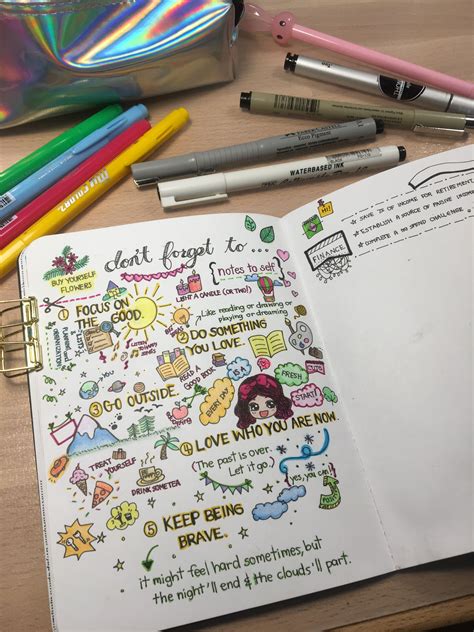 FABER-CASTELL
Ecco Pigment
WATERBASED INK
MULTICOLOR2
don't forget to...
{notes to self}
BUY YOURSELF
FLOWERS
LIGHT A CANDLE (OR TWO!)
① FOCUS ON
THE GOOD.
Like reading or drawing or
playing or dreaming
② DO SOMETHING
YOU LOVE.
PLANNING and
ORGANIZATION
LISTS
LISTEN to
SONGS
READ A
GOOD BOOK
③ GO OUTSIDE.
EVERY DAY
IS A
FRESH
START!
④ LOVE WHO YOU ARE NOW.
(The past is over.
Let it go.)
(yes, you can!)
TREAT
YOURSELF
DRINK SOME TEA
⑤ KEEP BEING
BRAVE.
it might feel hard sometimes, but
the night'll end & the clouds'll part.
HI!
FINANCE
★ SAVE % OF INCOME FOR RETIREMENT
★ ESTABLISH A SOURCE OF PASSIVE INCOME
★ COMPLETE A NO SPEND CHALLENGE